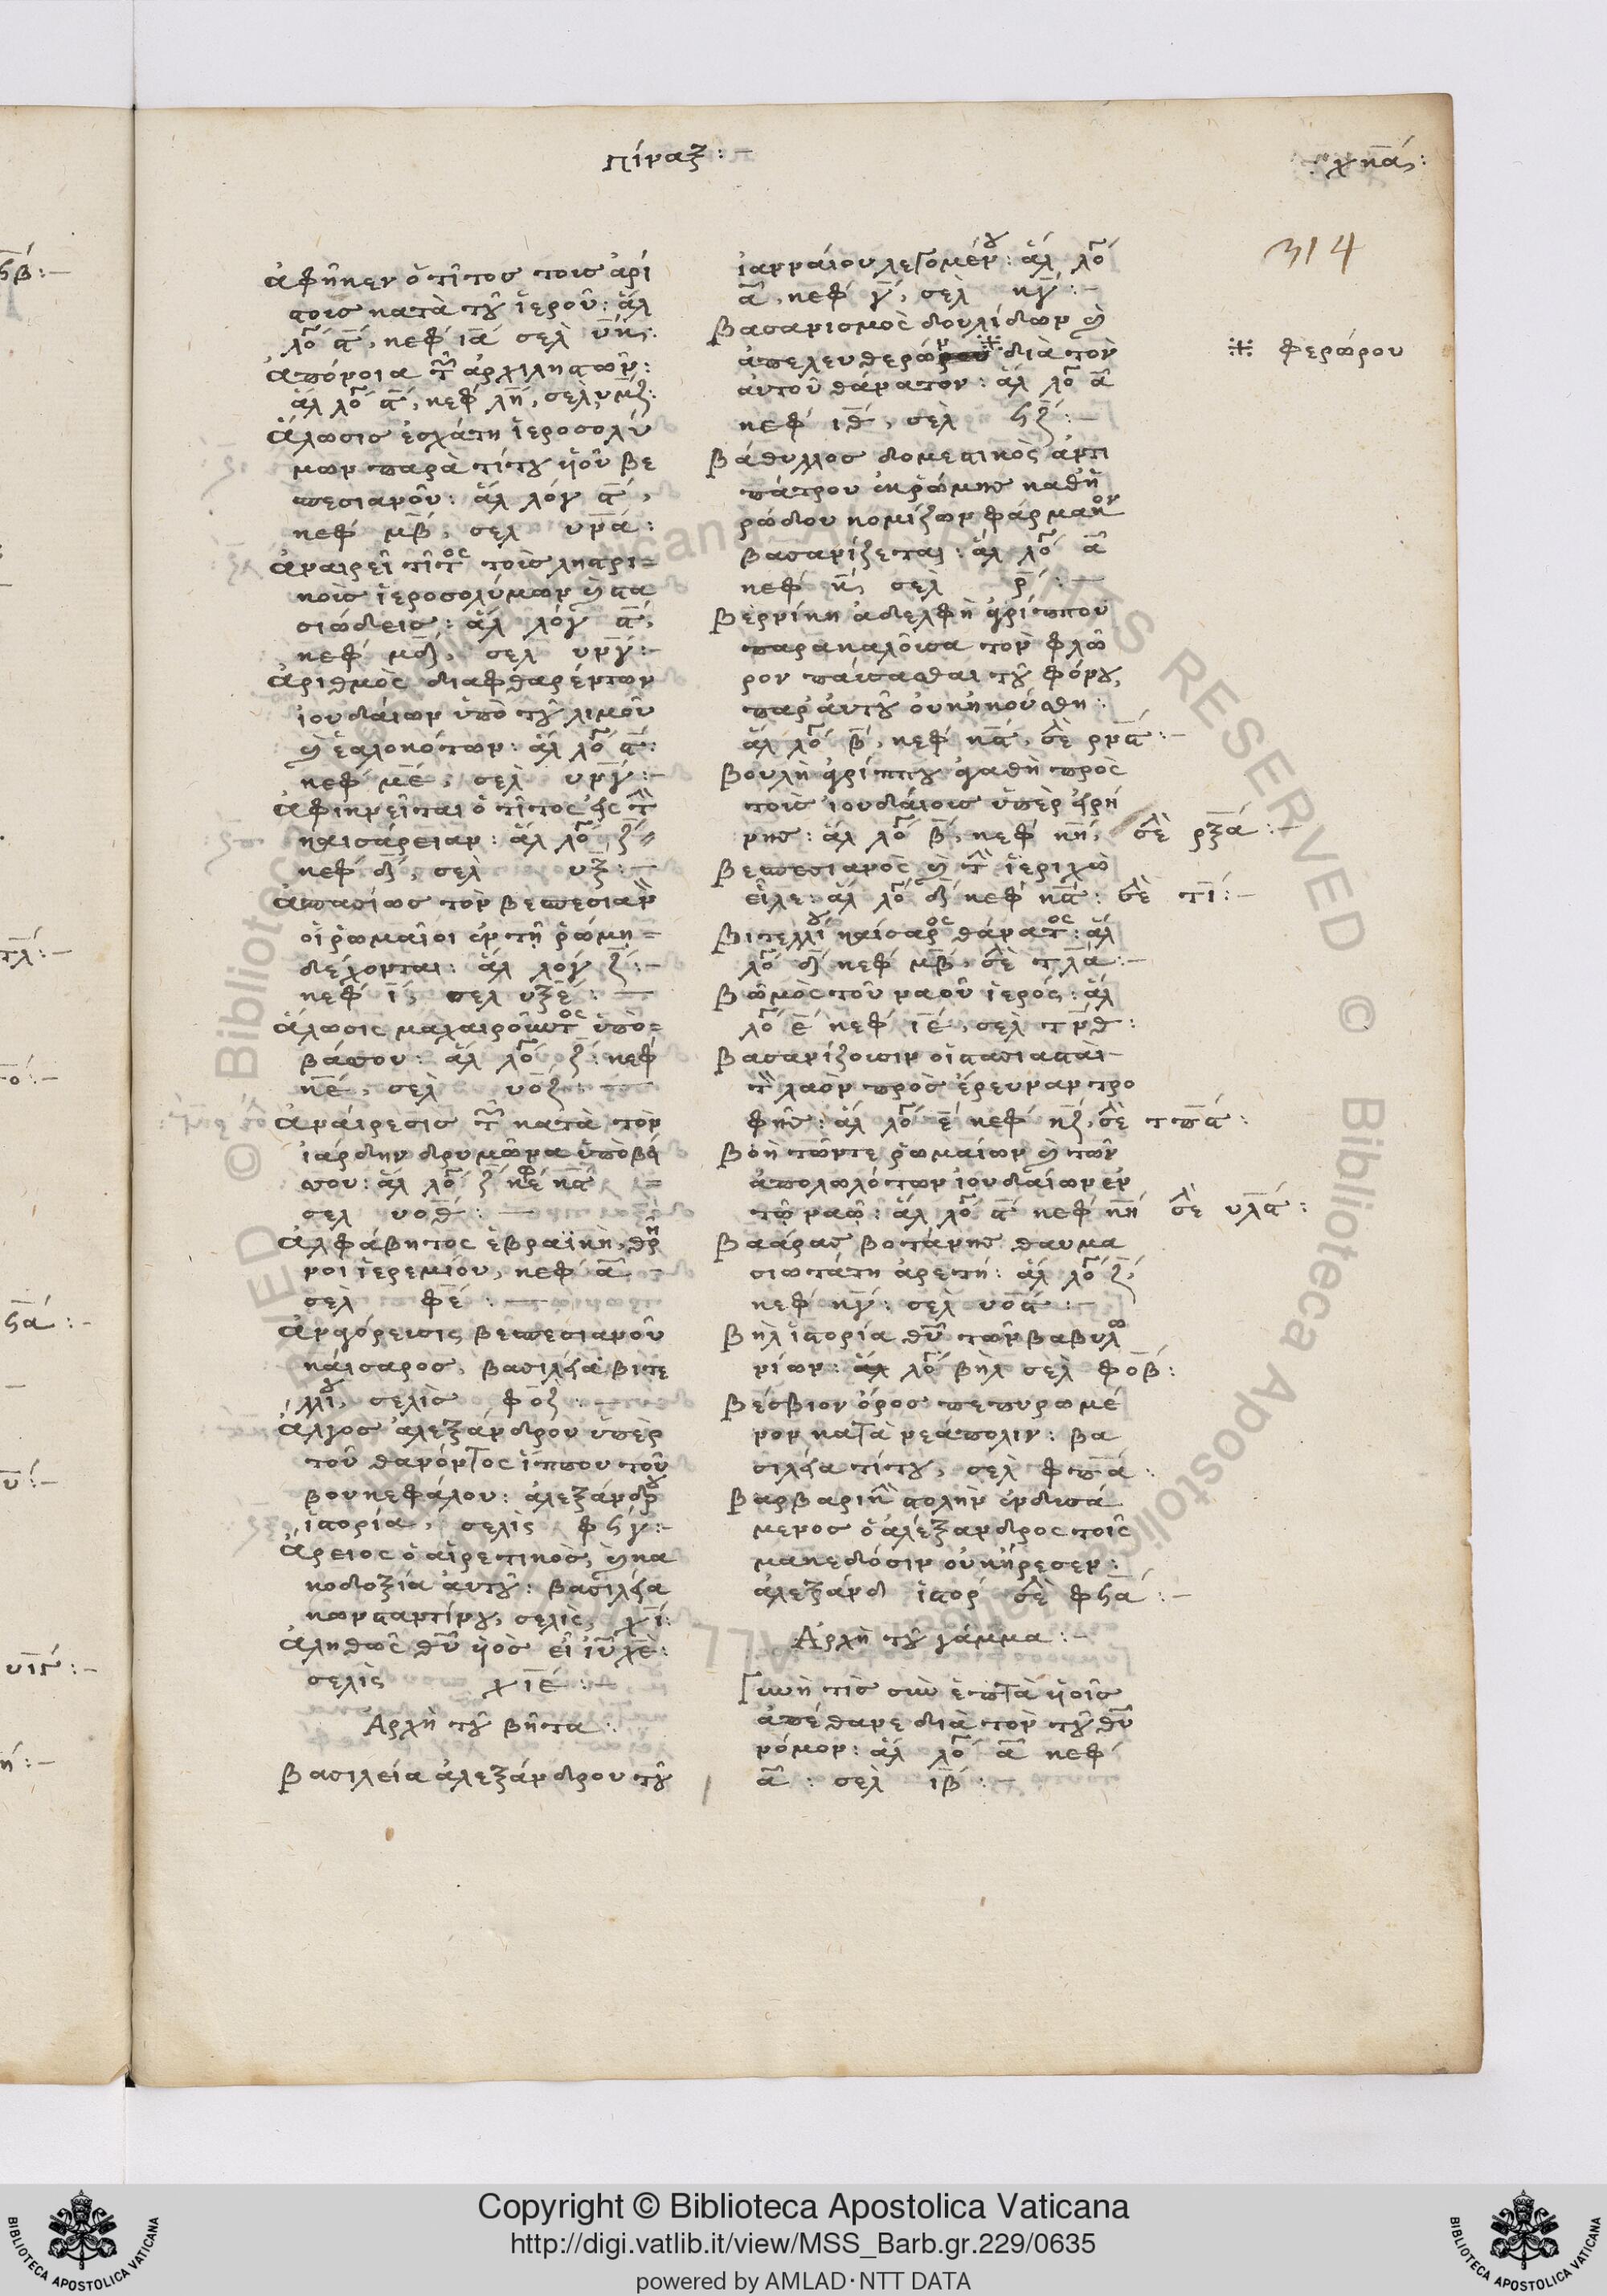 πίναξ:—
χκα:
314
ἀφῆκεν ὁ τῖτος τοισ ἀρί
στοισ κατὰ τοῦ ἱεροῦ: ἅλ
ἀπόνοια τῶν ἀρχιληστῶν:
Ἅλωσισ ἐσχάτη ἱεροσολύ
μων παρὰ τίτου ὑιοῦ βε
σπεσιανοῦ: ἅλ λόγ ϛ,
κεφ μβ, σελ υνα:
ἀναιρεῖ τῖτος τοὺσ ληστρι
κοὺσ ἱεροσολύμων καὶ στα
σιώδεισ: ἅλ λόγ ϛ,
κεφ μδ, σελ υνγ:—
Ἀριθμὸς διαφθαρέντων
ἰουδαίων ὑπὸ τοῦ λιμοῦ
καὶ ἑαλοκότων: ἅλ λο ϛ:
κεφ με, σελ υνγ:—
Ἀφικνεῖται ὁ τῖτος εἰς τὴν
καισάρειαν: ἅλ λο ζ
κεφ δ, σελ υξ:—
Ἀσπασίωσ τὸν βεσπεσιανὸν
οἱ ῥωμαῖοι ἐν τῆ ῥώμη
δέχονται: ἅλ λόγ ζ:—
κεφ ι, σελ υξε:—
Ἅλωσις μαχαιροῦντος ὑπὸ
βάσσου: ἅλ λο ζ: κεφ
κε, σελ υοζ:—
Ἀναίρεσισ τῶν κατὰ τὸν
ἰάρδην δρυμῶνα ὑπὸ βά
σσου: ἅλ λο ζ κεφ κϛ
σελ υοθ:—
Ἀλφάβητος ἑβραϊκὴ, θρῆ
νοι ἱερεμίου, κεφ α
σελ φε:—
Ἀναγόρευσις βεσπεσιανοῦ
καίσαρος, βασιλεία βιτε
λλίου, σελὶσ φοζ:—
Ἄλγοσ ἀλεξάνδρου ὑπὲρ
τοῦ θανόντος ἵππου τοῦ
βουκεφάλου: ἀλεξάνδρου
ἱστορία, σελὶς φϟγ:—
Ἄρειος ὁ αἱρετικὸσ, καὶ κα
κοδοξία ἀυτοῦ: βασιλεία
κωνσταντίνου, σελὶς, χι:
Ἀληθῶς θῦ ὑιὸσ εἶ ἰῦ χὲ:
σελὶς χιε:—
Ἀρχὴ τοῦ βῆτα:
Βασιλεία ἀλεξάνδρου τοῦ
ἰανναίου λεγομένου: ἅλ λο
α, κεφ γ, σελ κγ:—
Βασανισμὸς δουλίδων καὶ
διὰ τὸν
ἀυτοῦ θάνατον: ἅλ λο α
κεφ ιθ, σελ ϟζ:—
※ φερώρου
Βάθυλλοσ δομεστικὸς ἀντι
πάτρου ἐκ ῥώμησ καθ' ἡ
ρώδου κομίζων φάρμακον
βασανίζεται: ἅλ λο α
κεφ κ, σελ ρ:—
Βερνίκη ἀδελφὴ ἀγρίππου
παρακαλοῦσα τὸν φλῶ
ρον παύσασθαι τοῦ φόνου,
παρ' ἀυτοῦ οὐκ ἠκούσθη:
ἅλ λο β, κεφ κϛ, σελ ρνϛ:—
Βουλὴ ἀγρίππου ἀγαθὴ πρὸς
τοὺσ ἰουδαίουσ ὑπὲρ εἰρή
νησ: ἅλ λο β, κεφ κη, σελ ρξα:—
Βεσπεσιανὸς καὶ τὴν ἱεριχὼ
εἷλε: ἅλ λο δ κεφ κϛ: σελ τι:—
Βιτελλίου καίσαρος θάνατος: ἅλ
λο δ κεφ μβ, σελ τλα:—
Βωμὸς τοῦ ναοῦ ἱερός: ἅλ
λο ε κεφ ιε, σελ τνθ:
Βασανίζουσιν οἱ στασιασταὶ
τὸν λαὸν πρὸσ ἔρευναν τρο
φῆσ: ἅλ λο ε κεφ κζ, σελ τπϛ:
Βοὴ τῶν τε ῥωμαίων καὶ τῶν
ἀπολωλότων ἰουδαίων ἐν
τῶ ναῶ: ἅλ λο ϛ κεφ κη σελ υλϛ:
Βαάρασ βοτάνησ θαυμα
σιωτάτη ἀρετή: ἅλ λο ζ,
κεφ κγ: σελ υοϛ:—
Βὴλ ἱστορία θῦ τῶν βαβυλω
νίων: λο βὴλ σελ φοβ:
Βέσβιον ὄροσ πεπυρωμέ
νον κατὰ νεάπολιν: βα
σιλεία τίτου, σελ φπα:
Βαρβαρικὴν στολὴν ἐνδυσά
μενοσ ὁ ἀλέξανδρος τοῖς
μακεδόσιν οὐκ ἤρεσεν:
ἀλεξάνδ ἱστορ σελ φϟα:—
Ἀρχὴ τοῦ γάμμα:—
Γυνὴ τὶσ σὺν ἑπτὰ ὑιοῖσ
ἀπέθανε διὰ τὸν τοῦ θῦ
νόμον: ἅλ λο α κεφ
α: σελ ιβ:—
Copyright © Biblioteca Apostolica Vaticana
http://digi.vatlib.it/view/MSS_Barb.gr.229/0635
powered by AMLAD·NTT DATA
BIBLIOTECA APOSTOLICA VATICANA
BIBLIOTECA APOSTOLICA VATICANA